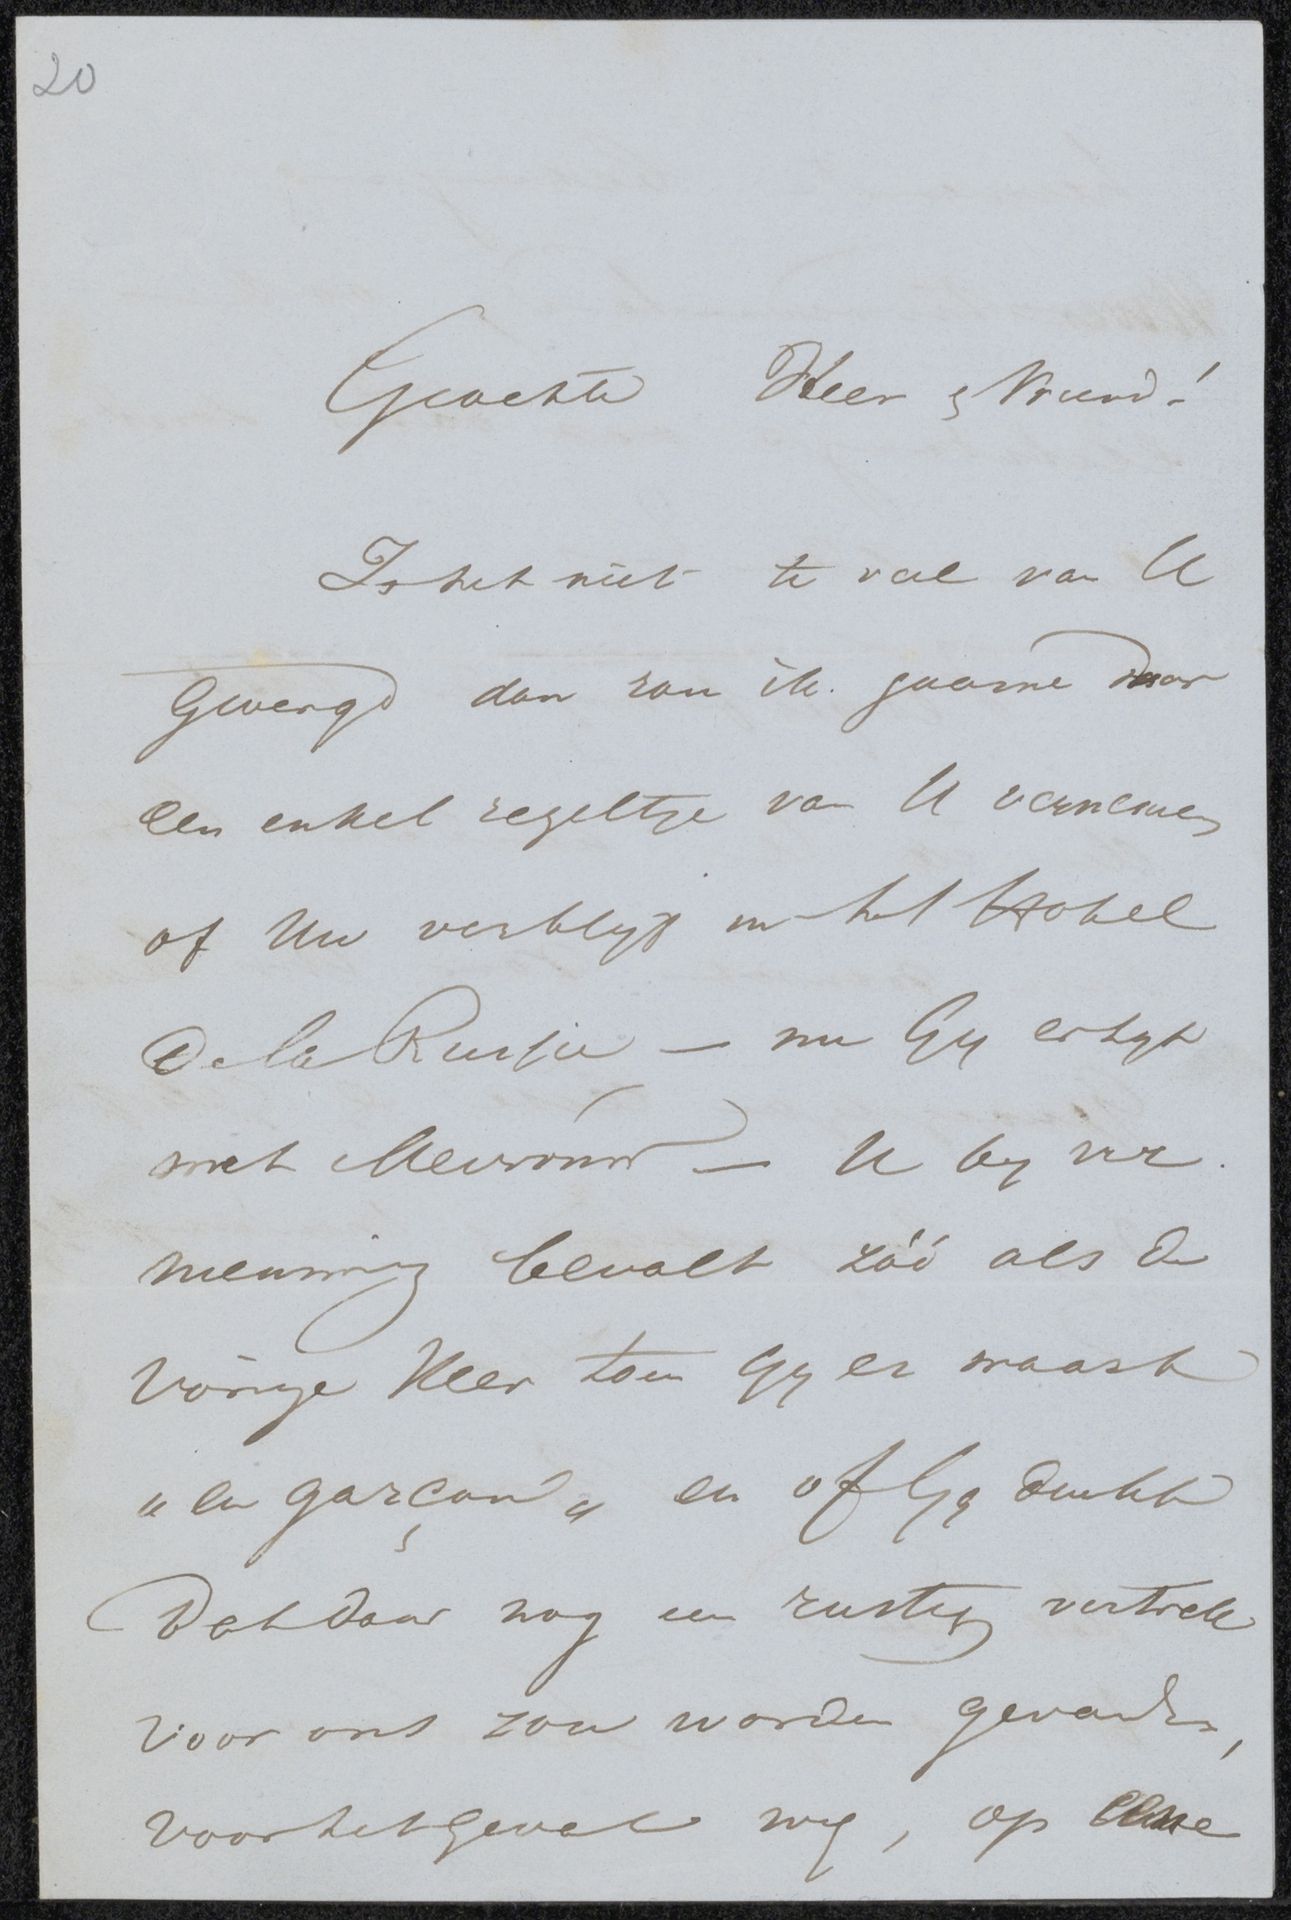 20
Geachte Heer & Vriend!
Is het niet te veel van U
Gevergd dan zou ik gaarne door
een enkel regeltje van U vernemen
of Uw verblijf in het Hotel
de la Russie — nu Gij er zijt
met Mevrouw — U bij ver
nieuwing bevalt zóó als de
vorige keer toen Gij er waart
„en garçon„ en of Gij denkt
Dat daar nog een rustig vertrek
voor ons zou worden gevonden,
voor het geval wij, op